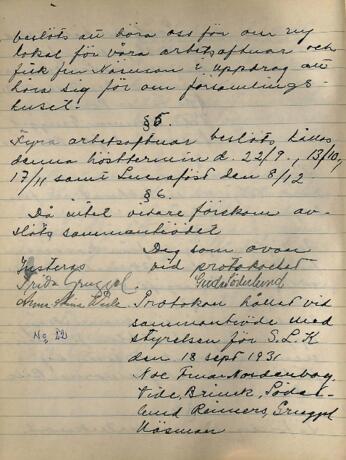 beslöts att höra oss för om ny
lokal för våra arbetsaftnar och
fick fru Näsman i uppdrag att
höra sig för om församlings-
huset.
§5.
Fyra arbetsaftnar beslöts hållas
denna höstterminen d. 22/9., 13/10,
17/11 samt Luciafäst den 8/12
§6.
Då intet vidare förekom av-
slöts sammanträdet
Dag som ovan
Justeras vid protokollet
Frida Gruggel Söderlund
Anna
No 22 Protokoll hållet vid
sammanträde med
styrelsen för S.L.K
den 18 sept 1931
När. Fruar Nordenbag
Vide, Brink, Söder-
lund Reimers, Gruggel
Näsman